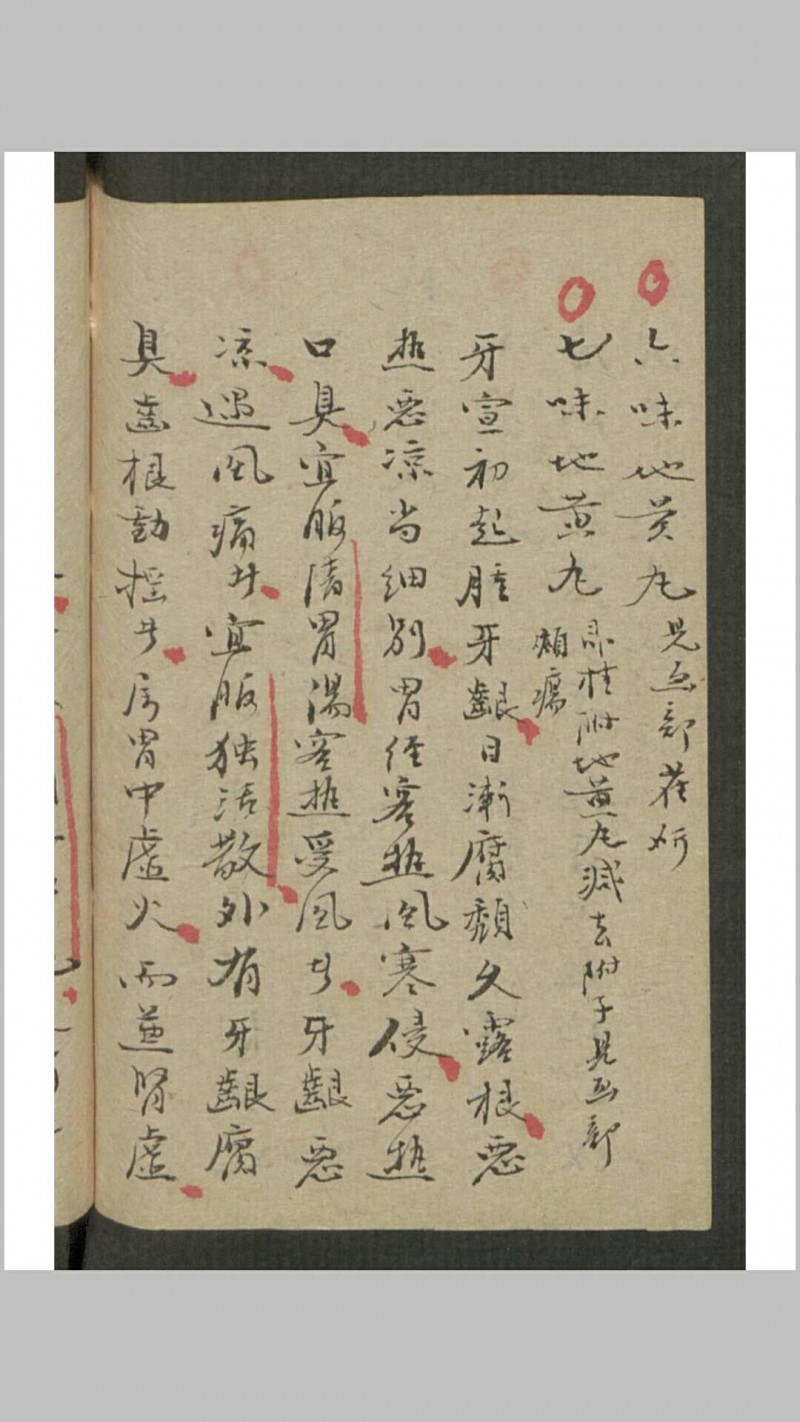 六味地黄丸 見面部雀斑
七味地黄丸 即桂附地黄丸减去附子見面部
頰瘍
牙宣初起腫牙齦日漸腐頹久露根惡
热惡凉当细别胃经客热風寒侵惡热
口臭宜服清胃湯客热受風者牙齦惡
凉遇風痛者宜服独活散外有牙齦腐
臭齒根動摇者属胃中虚火而兼腎虚